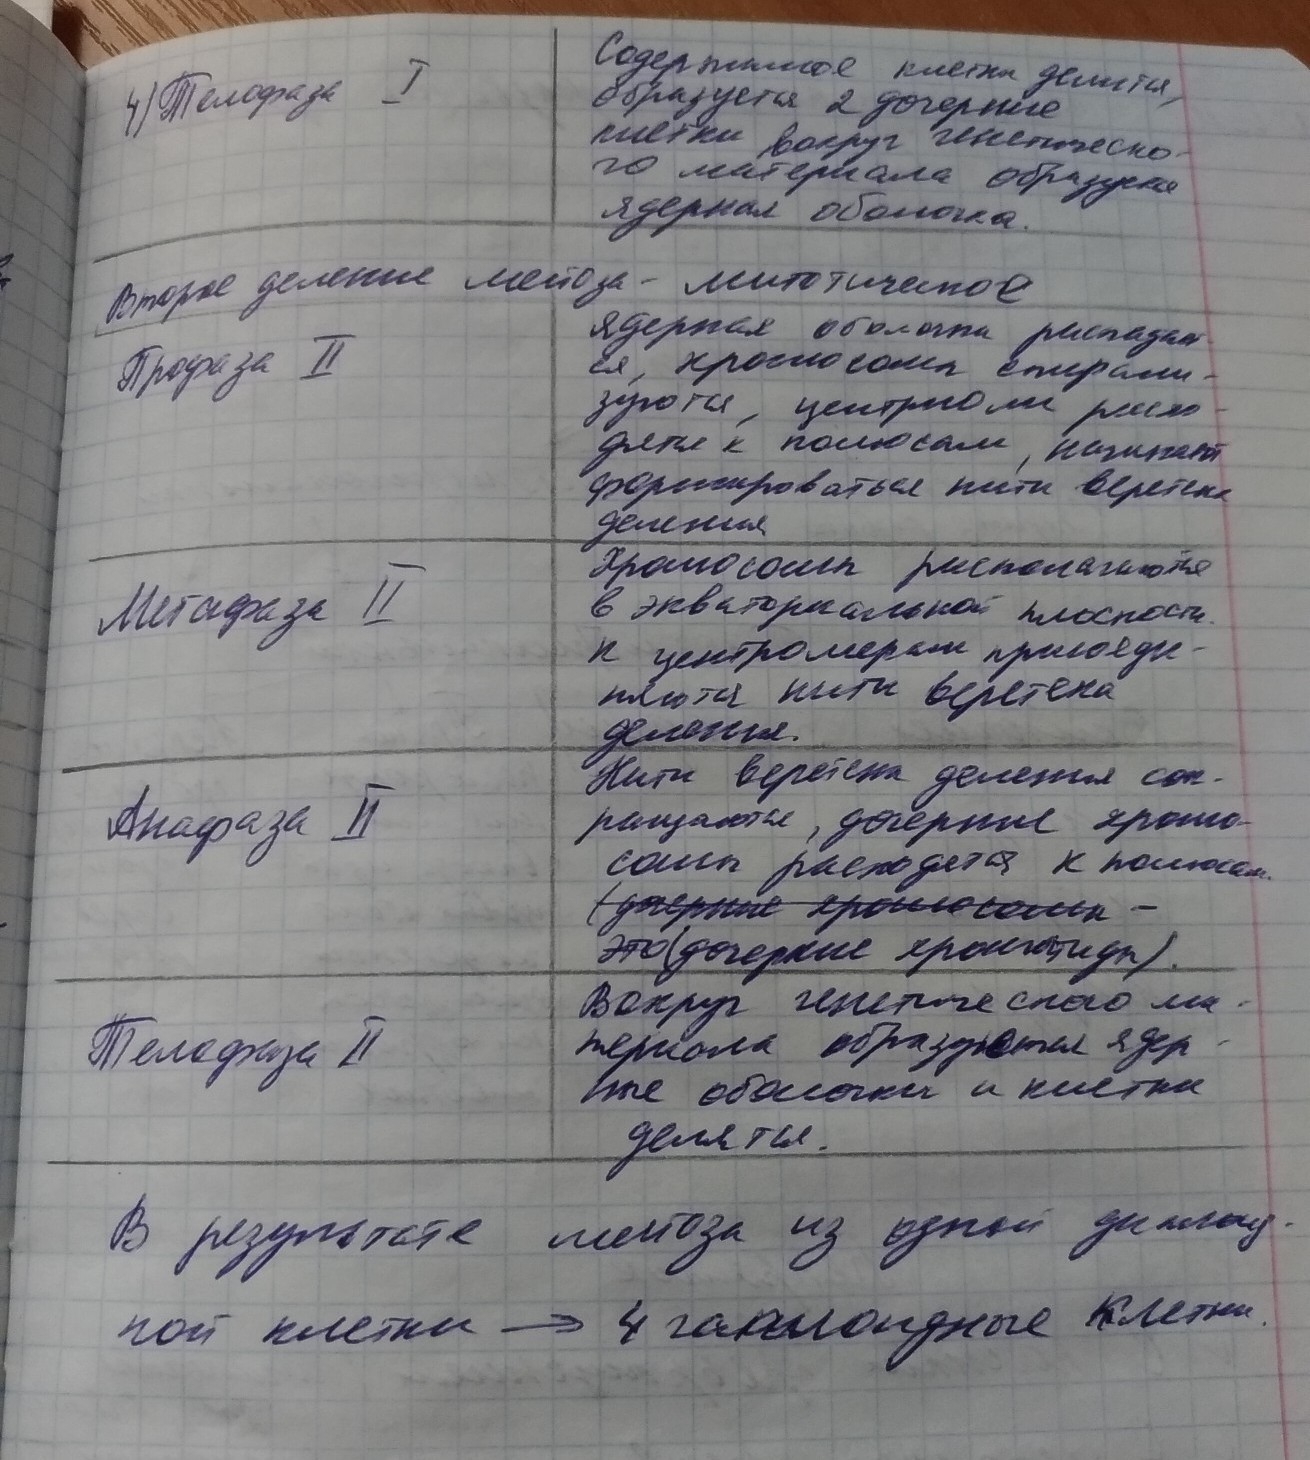 4) Телофаза I
Содержимое клетки делится,
образуется 2 дочерние
клетки вокруг генетическо-
го материала образуется
ядерная оболочка.
Второе деление мейоза - митотическое
Профаза II
ядерная оболочка распадает
ся, хромосомы спирали-
зуются, центриоли расхо-
дятся к полюсам, начинают
формироваться нити веретена
деления
Метафаза II
Хромосомы располагаются
в экваториальной плоскости.
К центромерам присоеди-
няются нити веретена
деления.
Анафаза II
Нити веретена деления сок-
ращаются, дочерние хромо-
сомы расходятся к полюсам.
(дочерние хромосомы -
это(дочерние хроматиды).
Телофаза II
Вокруг генетического ма-
териала образуются ядер-
ные оболочки и клетки
делятся.
В результате мейоза из одной диплоид-
ной клетки → 4 гаплоидные клетки.